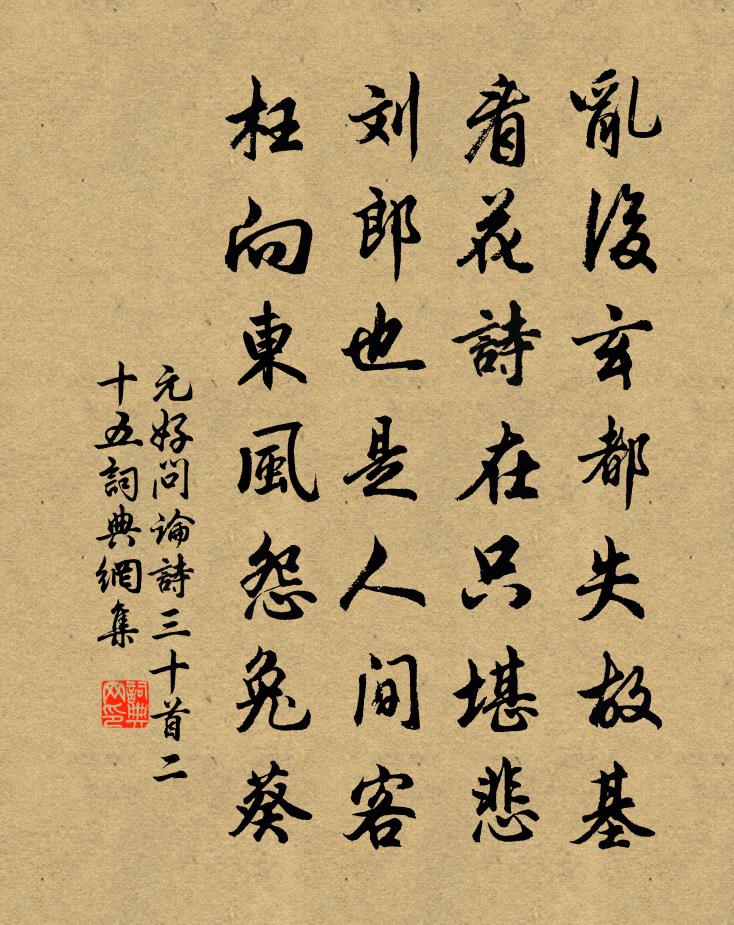 亂後玄都失故基
看花詩在只堪悲
刘郎也是人间客
枉向東風怨兔葵
元好问論詩三十首二
十五詞典網集
詞典
网印